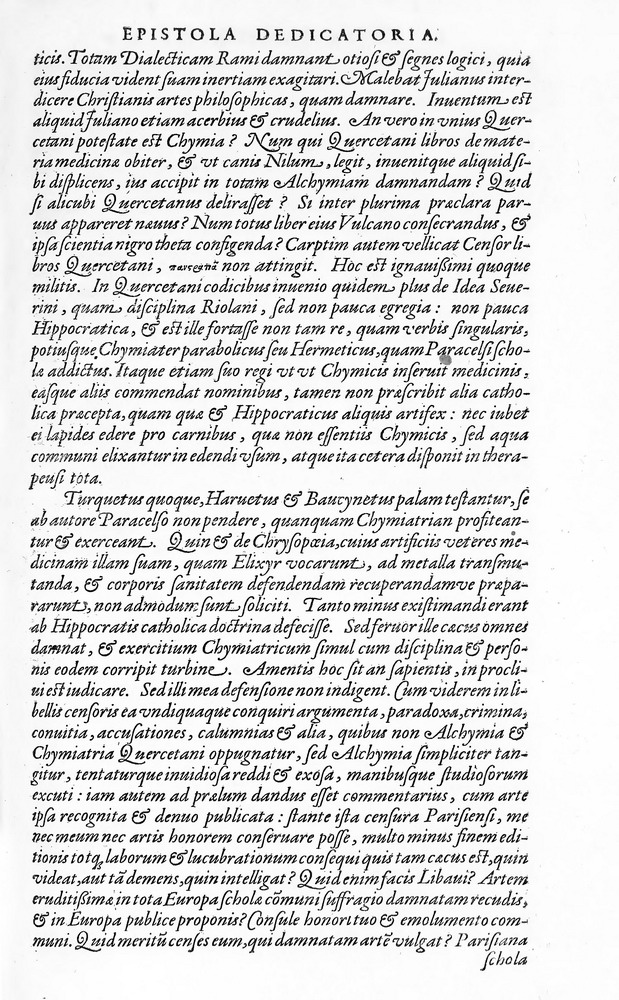 EPISTOLA DEDICATORIA.
ticis. Totam Dialecticam Rami damnant otiosi & segnes logici, quia
eius fiducia vident suam inertiam exagitari. Malebat Julianus inter-
dicere Christianis artes philosophicas, quam damnare. Inuentum est
aliquid Juliano etiam acerbius & crudelius. An vero in vnius Quer-
cetani potestate est Chymia? Num qui Quercetani libros de mate-
ria medicinæ obiter, & vt canis Nilum, legit, inuenitque aliquid si-
bi displicens, ius accipit in totam Alchymiam damnandam? Quid
si alicubi Quercetanus delirasset? Si inter plurima præclara par-
uus appareret næuus? Num totus liber eius Vulcano consecrandus, &
ipsa scientia nigro theta configenda? Carptim autem vellicat Censor li-
bros Quercetani, non attingit. Hoc est ignauißimi quoque
militis. In Quercetani codicibus inuenio quidem plus de Idea Seue-
rini, quam disciplina Riolani, sed non pauca egregia: non pauca
Hippocratica, & est ille fortasse non tam re, quam verbis singularis,
potiusque Chymiater parabolicus seu Hermeticus, quam Paracelsi scho-
læ addictus. Itaque etiam suo regi vt vt Chymicis inseruit medicinis,
easque aliis commendat nominibus, tamen non præscribit alia catho-
lica præcepta, quam quæ & Hippocraticus aliquis artifex: nec iubet
ei lapides edere pro carnibus, quæ non essentiis Chymicis, sed aqua
communi elixantur in edendi vsum, atque ita cetera disponit in thera-
peusi tota.
Turquetus quoque, Haruetus & Baucynetus palam testantur, se
ab autore Paracelso non pendere, quanquam Chymiatrian profitean-
tur & exerceant. Quin & de Chrysopœia, cuius artificiis veteres me-
dicinam illam suam, quam Elixyr vocarunt, ad metalla transmu-
tanda, & corporis sanitatem defendendam recuperandamve præpa-
rarunt, non admodum sunt soliciti. Tanto minus existimandi erant
ab Hippocratis catholica doctrina defecisse. Sed feruor ille cæcus omnes
damnat, & exercitium Chymiatricum simul cum disciplina & perso-
nis eodem corripit turbine. Amentis hoc sit an sapientis, in procli-
ui est iudicare. Sed illi mea defensione non indigent. Cum viderem in li-
bellis censoris ea vndiquaque conquiri argumenta, paradoxa, crimina,
conuitia, accusationes, calumnias & alia, quibus non Alchymia &
Chymiatria Quercetani oppugnatur, sed Alchymia simpliciter tan-
gitur, tentaturque inuidiosa reddi & exosa, manibusque studiosorum
excuti: iam autem ad prælum dandus esset commentarius, cum arte
ipsa recognita & denuo publicata: stante ista censura Parisiensi, me
nec meum nec artis honorem conseruare posse, multo minus finem edi-
tionis totq; laborum & lucubrationum consequi quis tam cæcus est, quin
videat, aut tā demens, quin intelligat? Quid enim facis Libaui? Artem
eruditißimæ in tota Europa scholæ cōmuni suffragio damnatam recudis,
& in Europa publice proponis? Consule honori tuo & emolumento com-
muni. Quid meritū censes eum, qui damnatam artē vulgat? Parisiana
schola